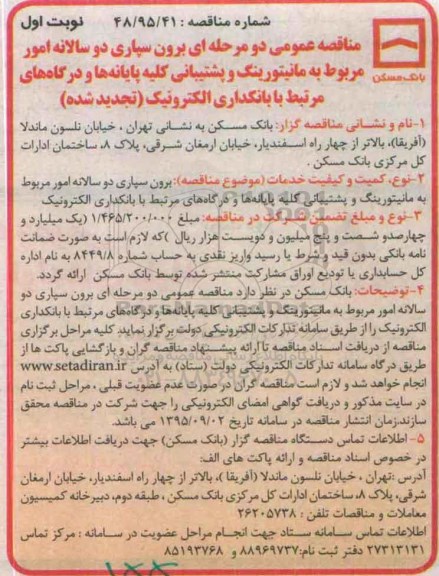 شماره مناقصه : ۴۸/۹۵/۴۱ نوبت اول
مناقصه عمومی دو مرحله ای برون سپاری دو سالانه امور
مربوط به مانیتورینگ و پشتیبانی کلیه پایانه‌ها و درگاه‌های
مرتبط با بانکداری الکترونیک (تجدید شده)
بانک مسکن
۱-نام و نشانی مناقصه گزار: بانک مسکن به نشانی تهران ، خیابان نلسون ماندلا
(آفریقا)، بالاتر از چهار راه اسفندیار، خیابان ارمغان شرقی، پلاک ۸، ساختمان ادارات
کل مرکزی بانک مسکن .
۲-نوع، کمیت و کیفیت خدمات (موضوع مناقصه): برون سپاری دو سالانه امور مربوط
به مانیتورینگ و پشتیبانی کلیه پایانه‌ها و درگاه‌های مرتبط با بانکداری الکترونیک
۳-نوع و مبلغ تضمین شرکت در مناقصه: مبلغ ۱/۴۶۵/۲۰۰/۰۰۰ (یک میلیارد و
چهارصدو شصت و پنج میلیون و دویست هزار ریال )که لازم است به صورت ضمانت
نامه بانکی بدون قید و شرط یا رسید واریز نقدی به حساب شماره ۸۴۴۹/۸ به نام اداره
کل حسابداری یا تودیع اوراق مشارکت منتشر شده توسط بانک مسکن ارائه گردد.
۴-توضیحات: بانک مسکن در نظر دارد مناقصه عمومی دو مرحله ای برون سپاری دو
سالانه امور مربوط به مانیتورینگ و پشتیبانی کلیه پایانه‌ها و درگاه‌های مرتبط با بانکداری
الکترونیک را از طریق سامانه تدارکات الکترونیکی دولت برگزار نماید کلیه مراحل برگزاری
مناقصه از دریافت اسناد مناقصه تا ارائه پیشنهاد مناقصه گران و بازگشایی پاکت ها از
طریق درگاه سامانه تدارکات الکترونیکی دولت (ستاد) به آدرس www.setadiran.ir
انجام خواهد شد و لازم است مناقصه گران در صورت عدم عضویت قبلی ، مراحل ثبت نام
در سایت مذکور و دریافت گواهی امضای الکترونیکی را جهت شرکت در مناقصه محقق
سازند.زمان انتشار مناقصه در سامانه تاریخ ۱۳۹۵/۰۹/۰۲ می باشد.
۵- اطلاعات تماس دستگاه مناقصه گزار (بانک مسکن) جهت دریافت اطلاعات بیشتر
در خصوص اسناد مناقصه و ارائه پاکت های الف:
آدرس :تهران ، خیابان نلسون ماندلا (آفریقا )، بالاتر از چهار راه اسفندیار، خیابان ارمغان
شرقی، پلاک ۸، ساختمان ادارات کل مرکزی بانک مسکن ، طبقه دوم، دبیرخانه کمیسیون
معاملات و مناقصات تلفن : ۲۶۲۰۵۷۳۸
اطلاعات تماس سامانه ستاد جهت انجام مراحل عضویت در سامانه : مرکز تماس
۲۷۳۱۳۱۳۱ دفتر ثبت نام:۸۸۹۶۹۷۳۷ و ۸۵۱۹۳۷۶۸